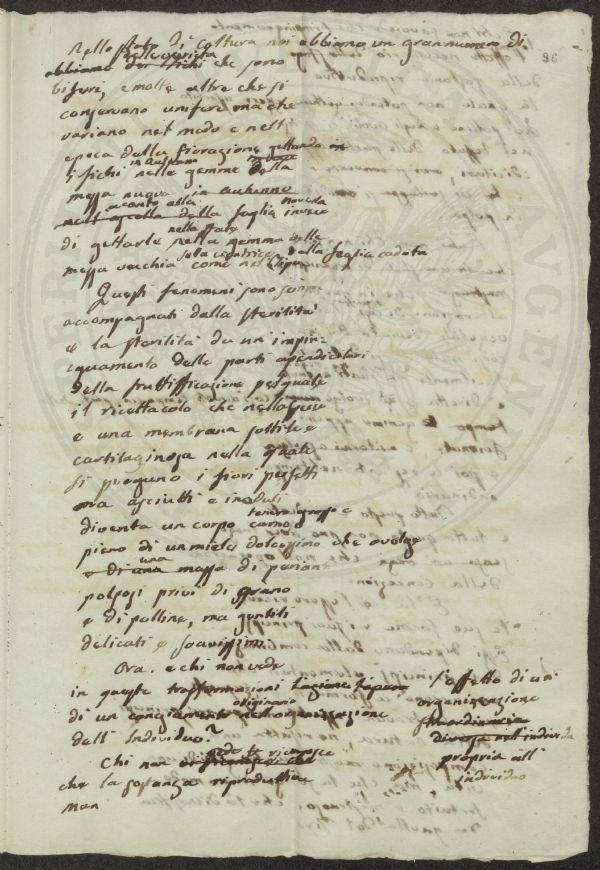 96
Nello stato di coltura noi abbiamo un gran numero di
abbiamo dei fichi che sono
biferi, e molte altre che si
conservano unifere ma che
variano nel modo e nell
epoca della fioragione gettando in
i fichi in autunno nelle gemme della
messa nuova in autunno
accanto alla nell ascella della foglia novella invece
di gettarle nella state nella gemma delle
messa vecchia sula cicatrice della foglia caduta
Questi fenomeni sono
accompagnati dalla sterilità
e la sterilità da un impin-
guamento delle parti apendicolari
della fruttificazione pel quale
il ricettacolo che nella
e una membrana sottile e
cartilaginosa nella quale
si pi i fiori perfetti
ma asciutti e inodori
diventa un corpo tenero grosso e carnoso
pieno di un miele dolcissimo che
e di una una massa di
polposi privi di grano
e di polline, ma gentili
delicati e soavissimi.
Ora. e chi non vede
in queste trasformazioni
di un cangiamento originario nell organizzazione
dell' Individuo?
l'effetto di un'
organizzazione
straordinaria
diversa nell'individuo
propria all'
individuo
Chi non vede e riconosce
che la sostanza riproduttiva
Man